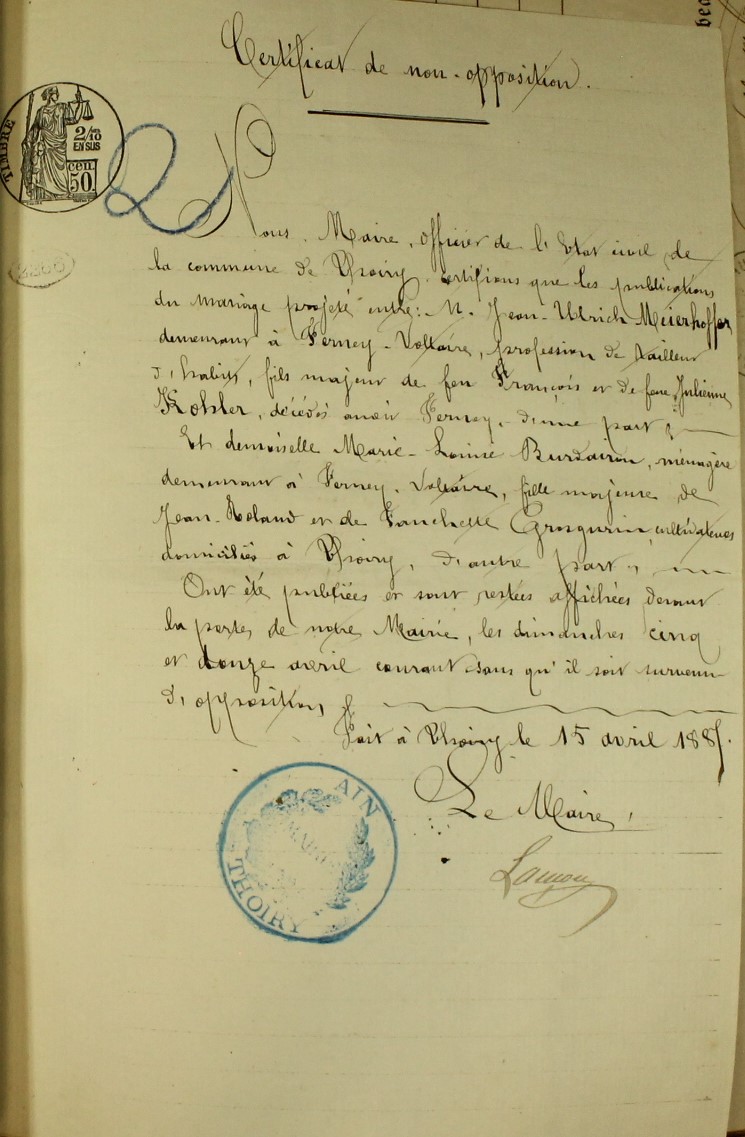 Certificat de non-opposition.
TIMBRE
2/10
EN SUS
cen.
50.
2
Nous, Maire, officier de l'Etat civil de
la commune de Thoiry, certifions que les publications
du mariage projeté entre: M. Jean-Uldrich Meierhoffer
demeurant à Ferney-Voltaire, profession de tailleur
d'habits, fils majeur de feu François et de feue Julienne
Kohler, décédés à Ferney, d'une part,
Et demoiselle Marie-Louise Burdairon, ménagère
demeurant à Ferney-Voltaire, fille majeure de
Jean-Roland et de Fanchette Grosgurin, cultivateurs
domiciliés à Thoiry, d'autre part,
Ont été publiées et sont restées affichées devant
la porte de notre Mairie, les dimanches cinq
et douze avril courant sans qu'il soit survenu
d'opposition,
Fait à Thoiry le 15 avril 1885.
Le Maire,
AIN
MAIRIE
THOIRY